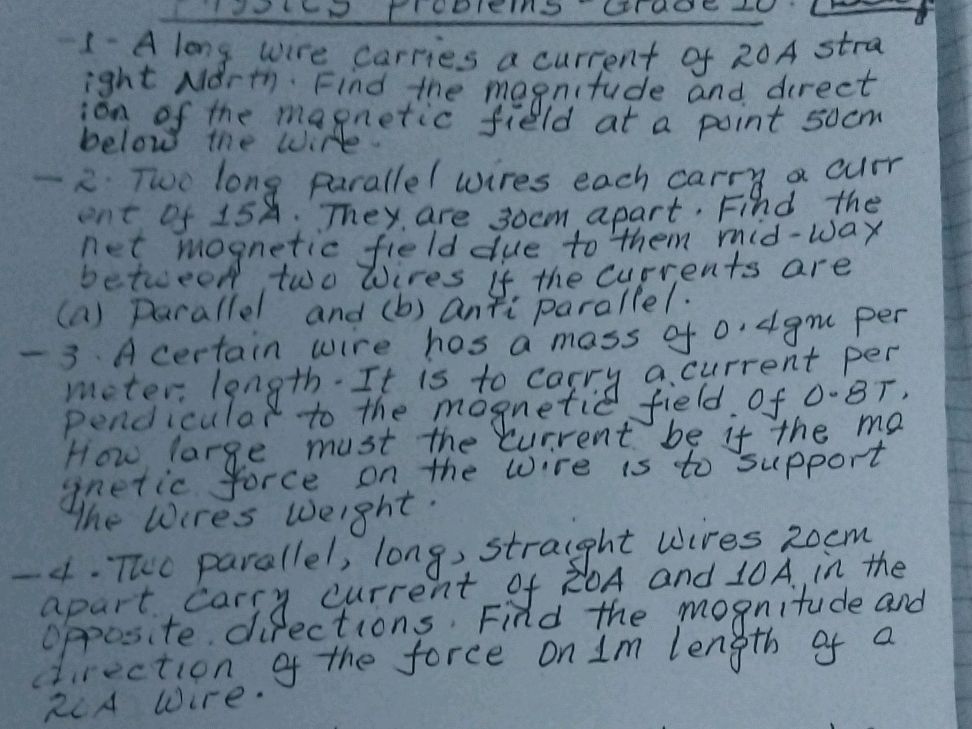 Physics Problems - Grade 10.
-1- A long wire carries a current of 20A stra
ight North. Find the magnitude and direct
ion of the magnetic field at a point 50cm
below the wire.
-2. Two long parallel wires each carry a curr
ent of 15A. They are 30cm apart. Find the
net magnetic field due to them mid-way
between two wires if the currents are
(a) Parallel and (b) anti parallel.
-3. A certain wire has a mass of 0.4gm per
meter length. It is to carry a current per
pendicular to the magnetic field of 0.8T.
How large must the current be if the ma
gnetic force on the wire is to support
the wires weight.
-4. Two parallel, long, straight wires 20cm
apart carry current of 20A and 10A in the
opposite directions. Find the magnitude and
direction of the force on 1m length of a
20A wire.